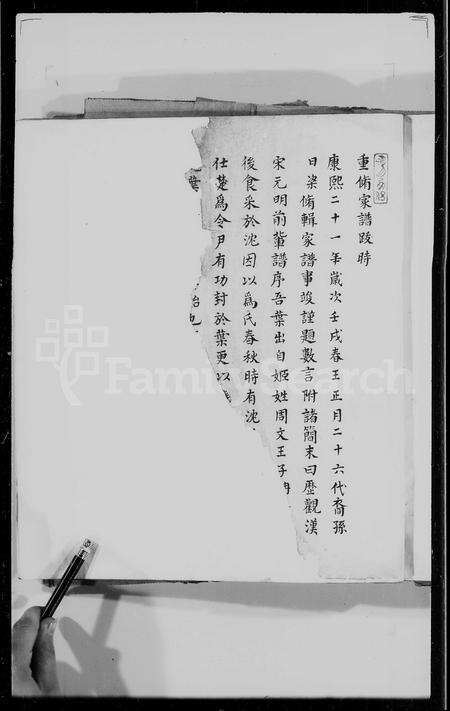 重脩家譜跋時
康熙二十一年歲次壬戌春王正月二十六代裔孫
日染脩輯家譜事竣謹題數言附諸簡末曰歷觀漢
宋元明前輩譜序吾葉出自姬姓周文王子冉
後食采於沈因以為氏春秋時有沈
仕楚為令尹有功封於葉更以
葉
始也
FamilySearch